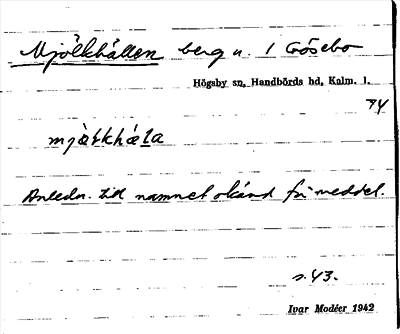 Mjölkhällen berg u. 1 Gösebo
Högsby sn, Handbörds hd, Kalm. l.
74
mjàlkhæla
Anledn. till namnet okänd för meddel.
s. 43.
Ivar Modéer 1942